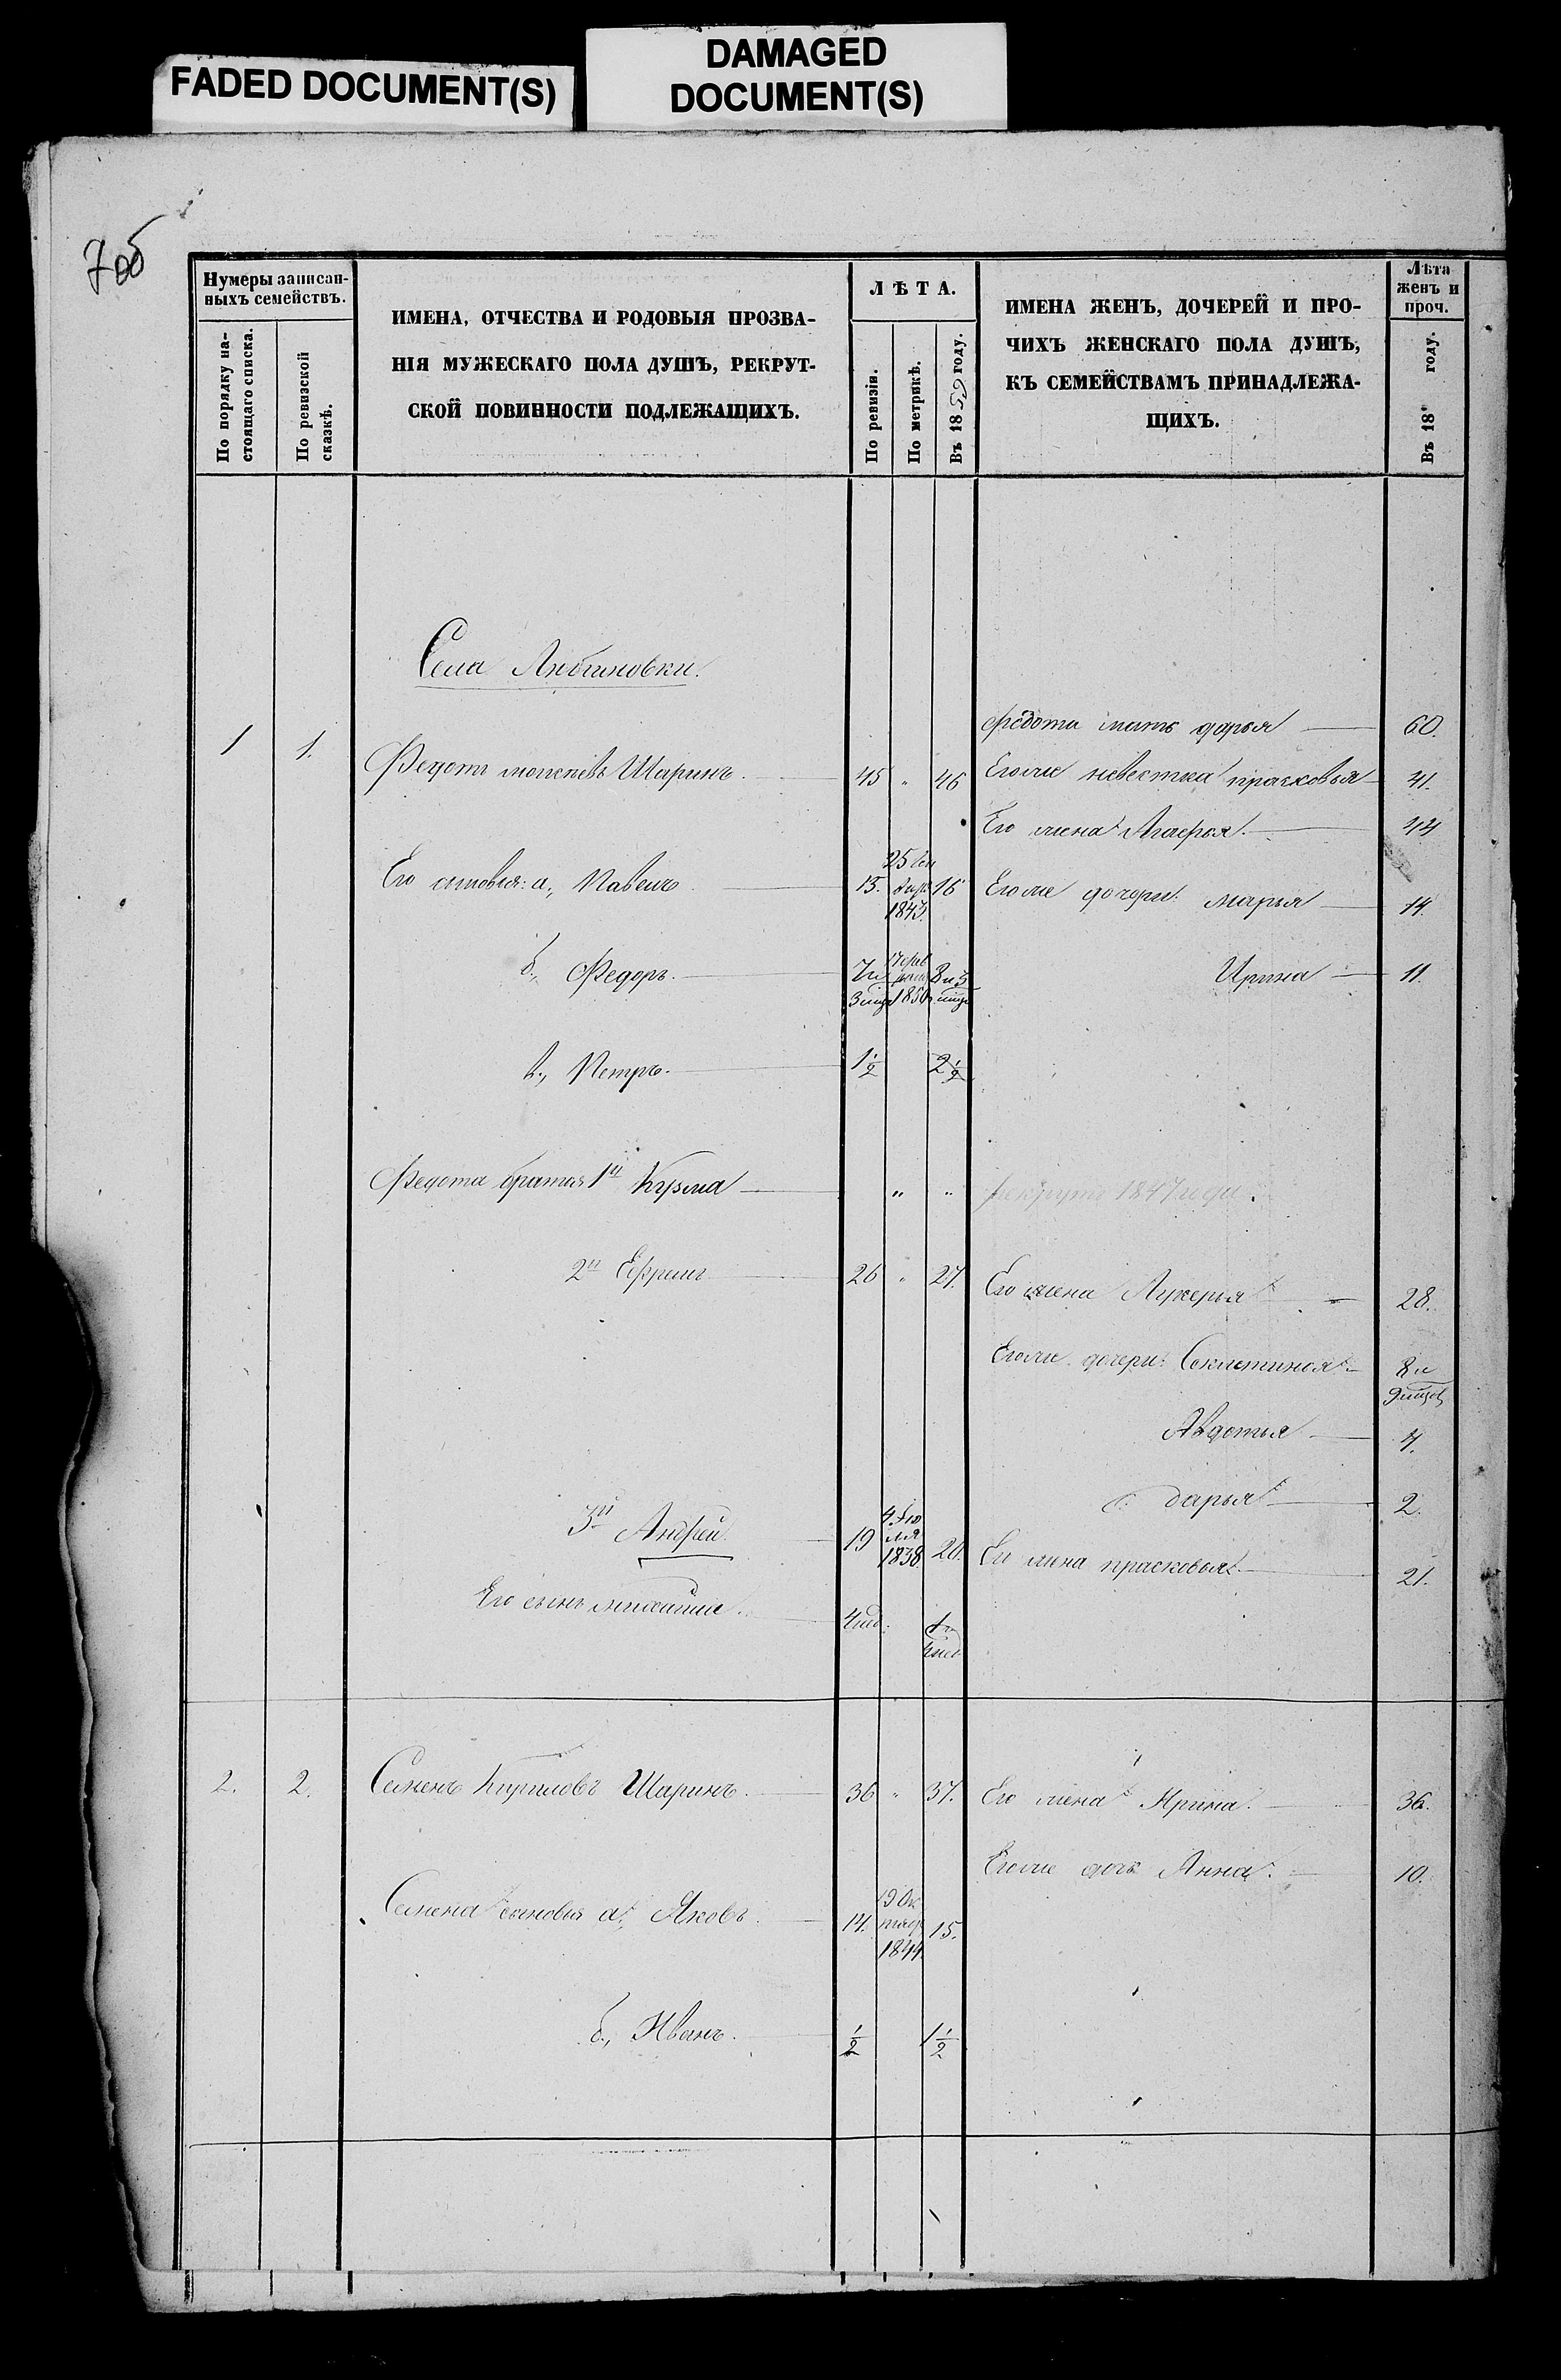 FADED DOCUMENT(S)
DAMAGED
DOCUMENT(S)
7об
Нумеры записан-
ныхъ семействъ.
По порядку на-
стоящаго списка.
По ревизской
сказкѣ.
ИМЕНА, ОТЧЕСТВА И РОДОВЫЯ ПРОЗВА-
НІЯ МУЖЕСКАГО ПОЛА ДУШЪ, РЕКРУТ-
СКОЙ ПОВИННОСТИ ПОДЛЕЖАЩИХЪ.
ЛѢТА.
По ревизіи.
По метрикѣ.
Въ 1859 году.
ИМЕНА ЖЕНЪ, ДОЧЕРЕЙ И ПРО-
ЧИХЪ ЖЕНСКАГО ПОЛА ДУШЪ,
КЪ СЕМЕЙСТВАМЪ ПРИНАДЛЕЖА-
ЩИХЪ.
Лѣта
женъ и
проч.
Въ 18 году.
Села
Федота мать дарья 60.
1 1. Федотъ Шаринъ. 45 " 46 Егоже невестка прасковья 41.
Его жена 44
Его сыновья: а., Павелъ 15. 25 1843. 16 Егоже дочери: марья 14.
б., Федоръ. 7 и 3 1850 8 и 3 Ирина 11.
в., Петръ. 1½ 2½
Федота братья 1й Кузма " " рекрутъ 1847 года.
2й Ефимъ 26 " 27. Его жена Лукерья 28.
Егоже дочери: 8 и
9
Авдотья 4.
дарья 2.
3й Андрей 19 4 Іюля 1838. 20. Его жена прасковья 21.
Его сынъ михаила
2. 2. Семенъ Кириловъ Шаринъ. 36 " 37. Его жена Ирина. 36.
Егоже дочь Анна. 10.
Семена сыновья а., Яковъ. 14. 19 Октяб 1844. 15.
б., Иванъ. ½ 1½